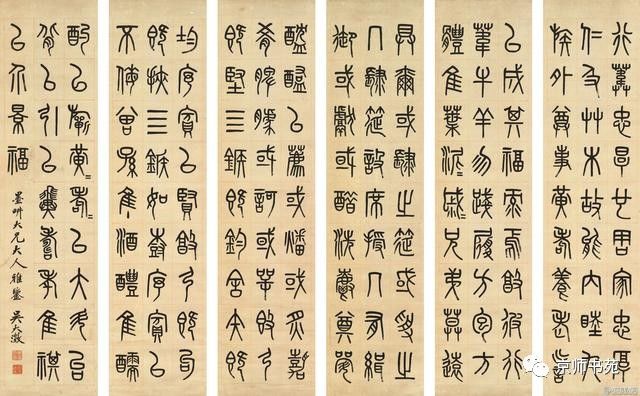 行葦忠厚也周家忠厚
仁及艸木故能內睦九
族外尊事黃耇養老言
以成其福祿焉敦彼行
葦牛羊勿踐履方苞方
體維葉泥=戚=兄弟莫遠
具爾或肆之筵或授之
几肆筵設席授几有緝
御或獻或酢洗爵奠斝
醓醢以薦或燔或炙嘉
肴脾臄或歌或咢敦弓
既堅三鍭既鈞舍矢既
均序賓以賢敦弓既句
既挾三鍭=如樹序賓以
不侮曾孫維酒醴維醹
酌以祈黃=耇=以大斗台
背以引以翼壽考維祺
以介景福
墨畊大兄大人雅鑒 吳大澂
京师书苑